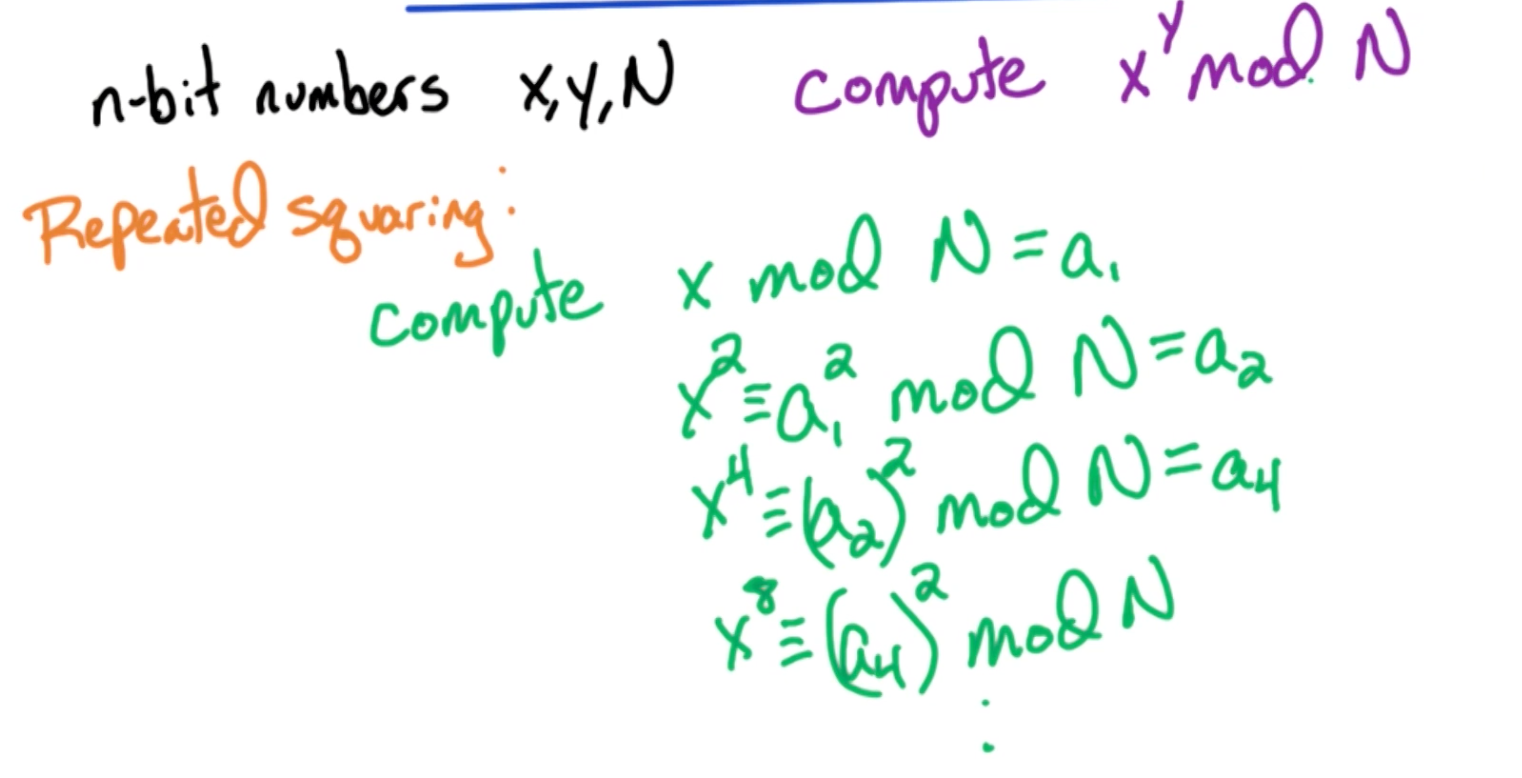 n-bit numbers x,y,N compute x^y mod N
Repeated squaring:
compute x mod N = a₁
x² ≡ a₁² mod N = a₂
x⁴ ≡ (a₂)² mod N = a₄
x⁸ ≡ (a₄)² mod N
⋮